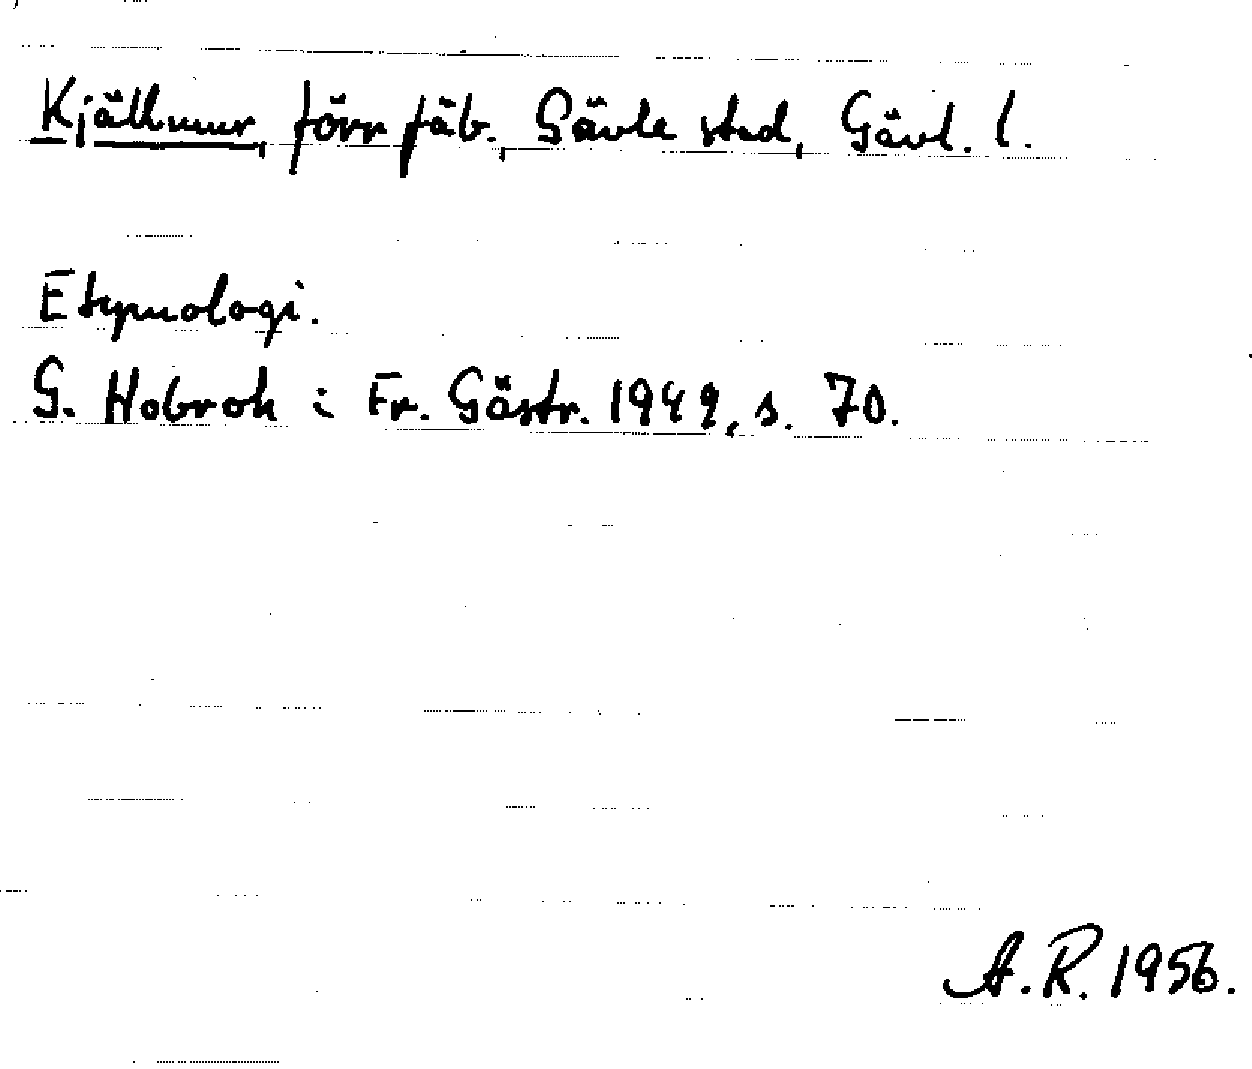 Kjällmur, förr fäb., Gävle stad, Gävl. l.
Etymologi.
G. Hobroh i Fr. Gästr. 1949, s. 70.
A. R. 1956.